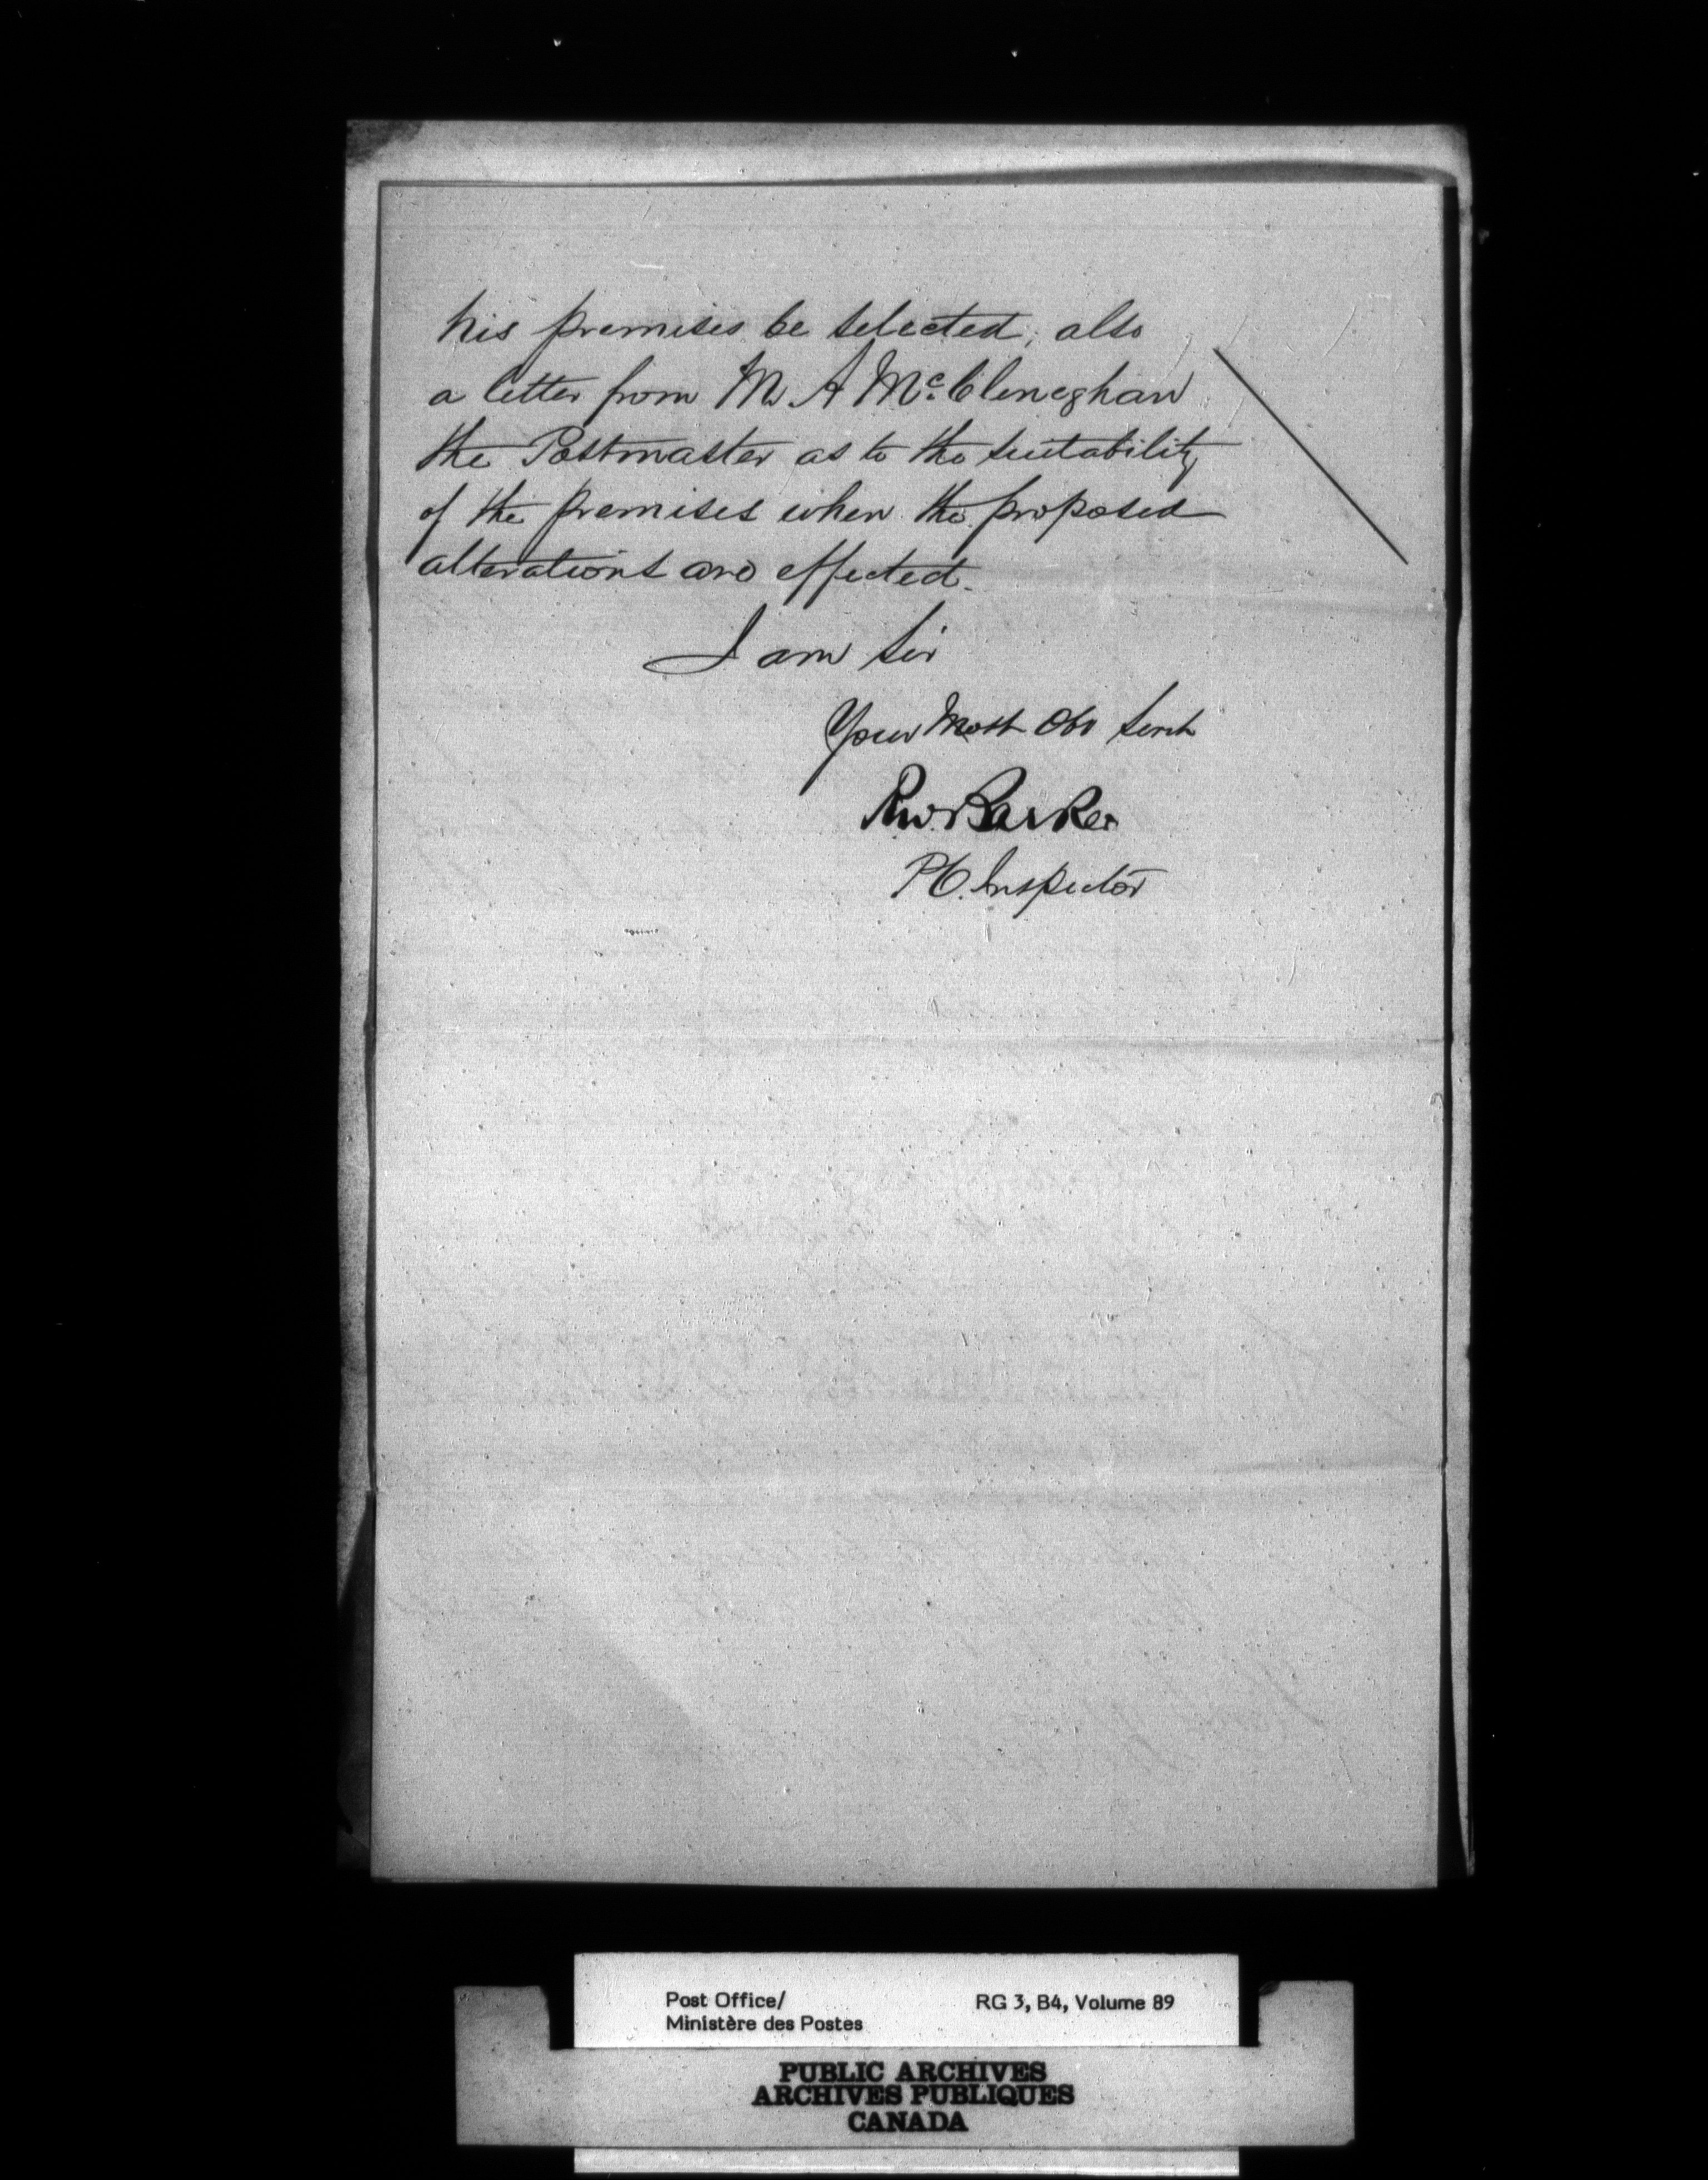 his premises be selected, also
a letter from Mr A McCleneghan
the Postmaster as to the suitability
of the premises when the proposed
alterations are effected.
I am Sir
Your Most Obt Servt
R.W. Barker
P.O. Inspector
Post Office/ RG 3, B4, Volume 89
Ministère des Postes
PUBLIC ARCHIVES
ARCHIVES PUBLIQUES
CANADA